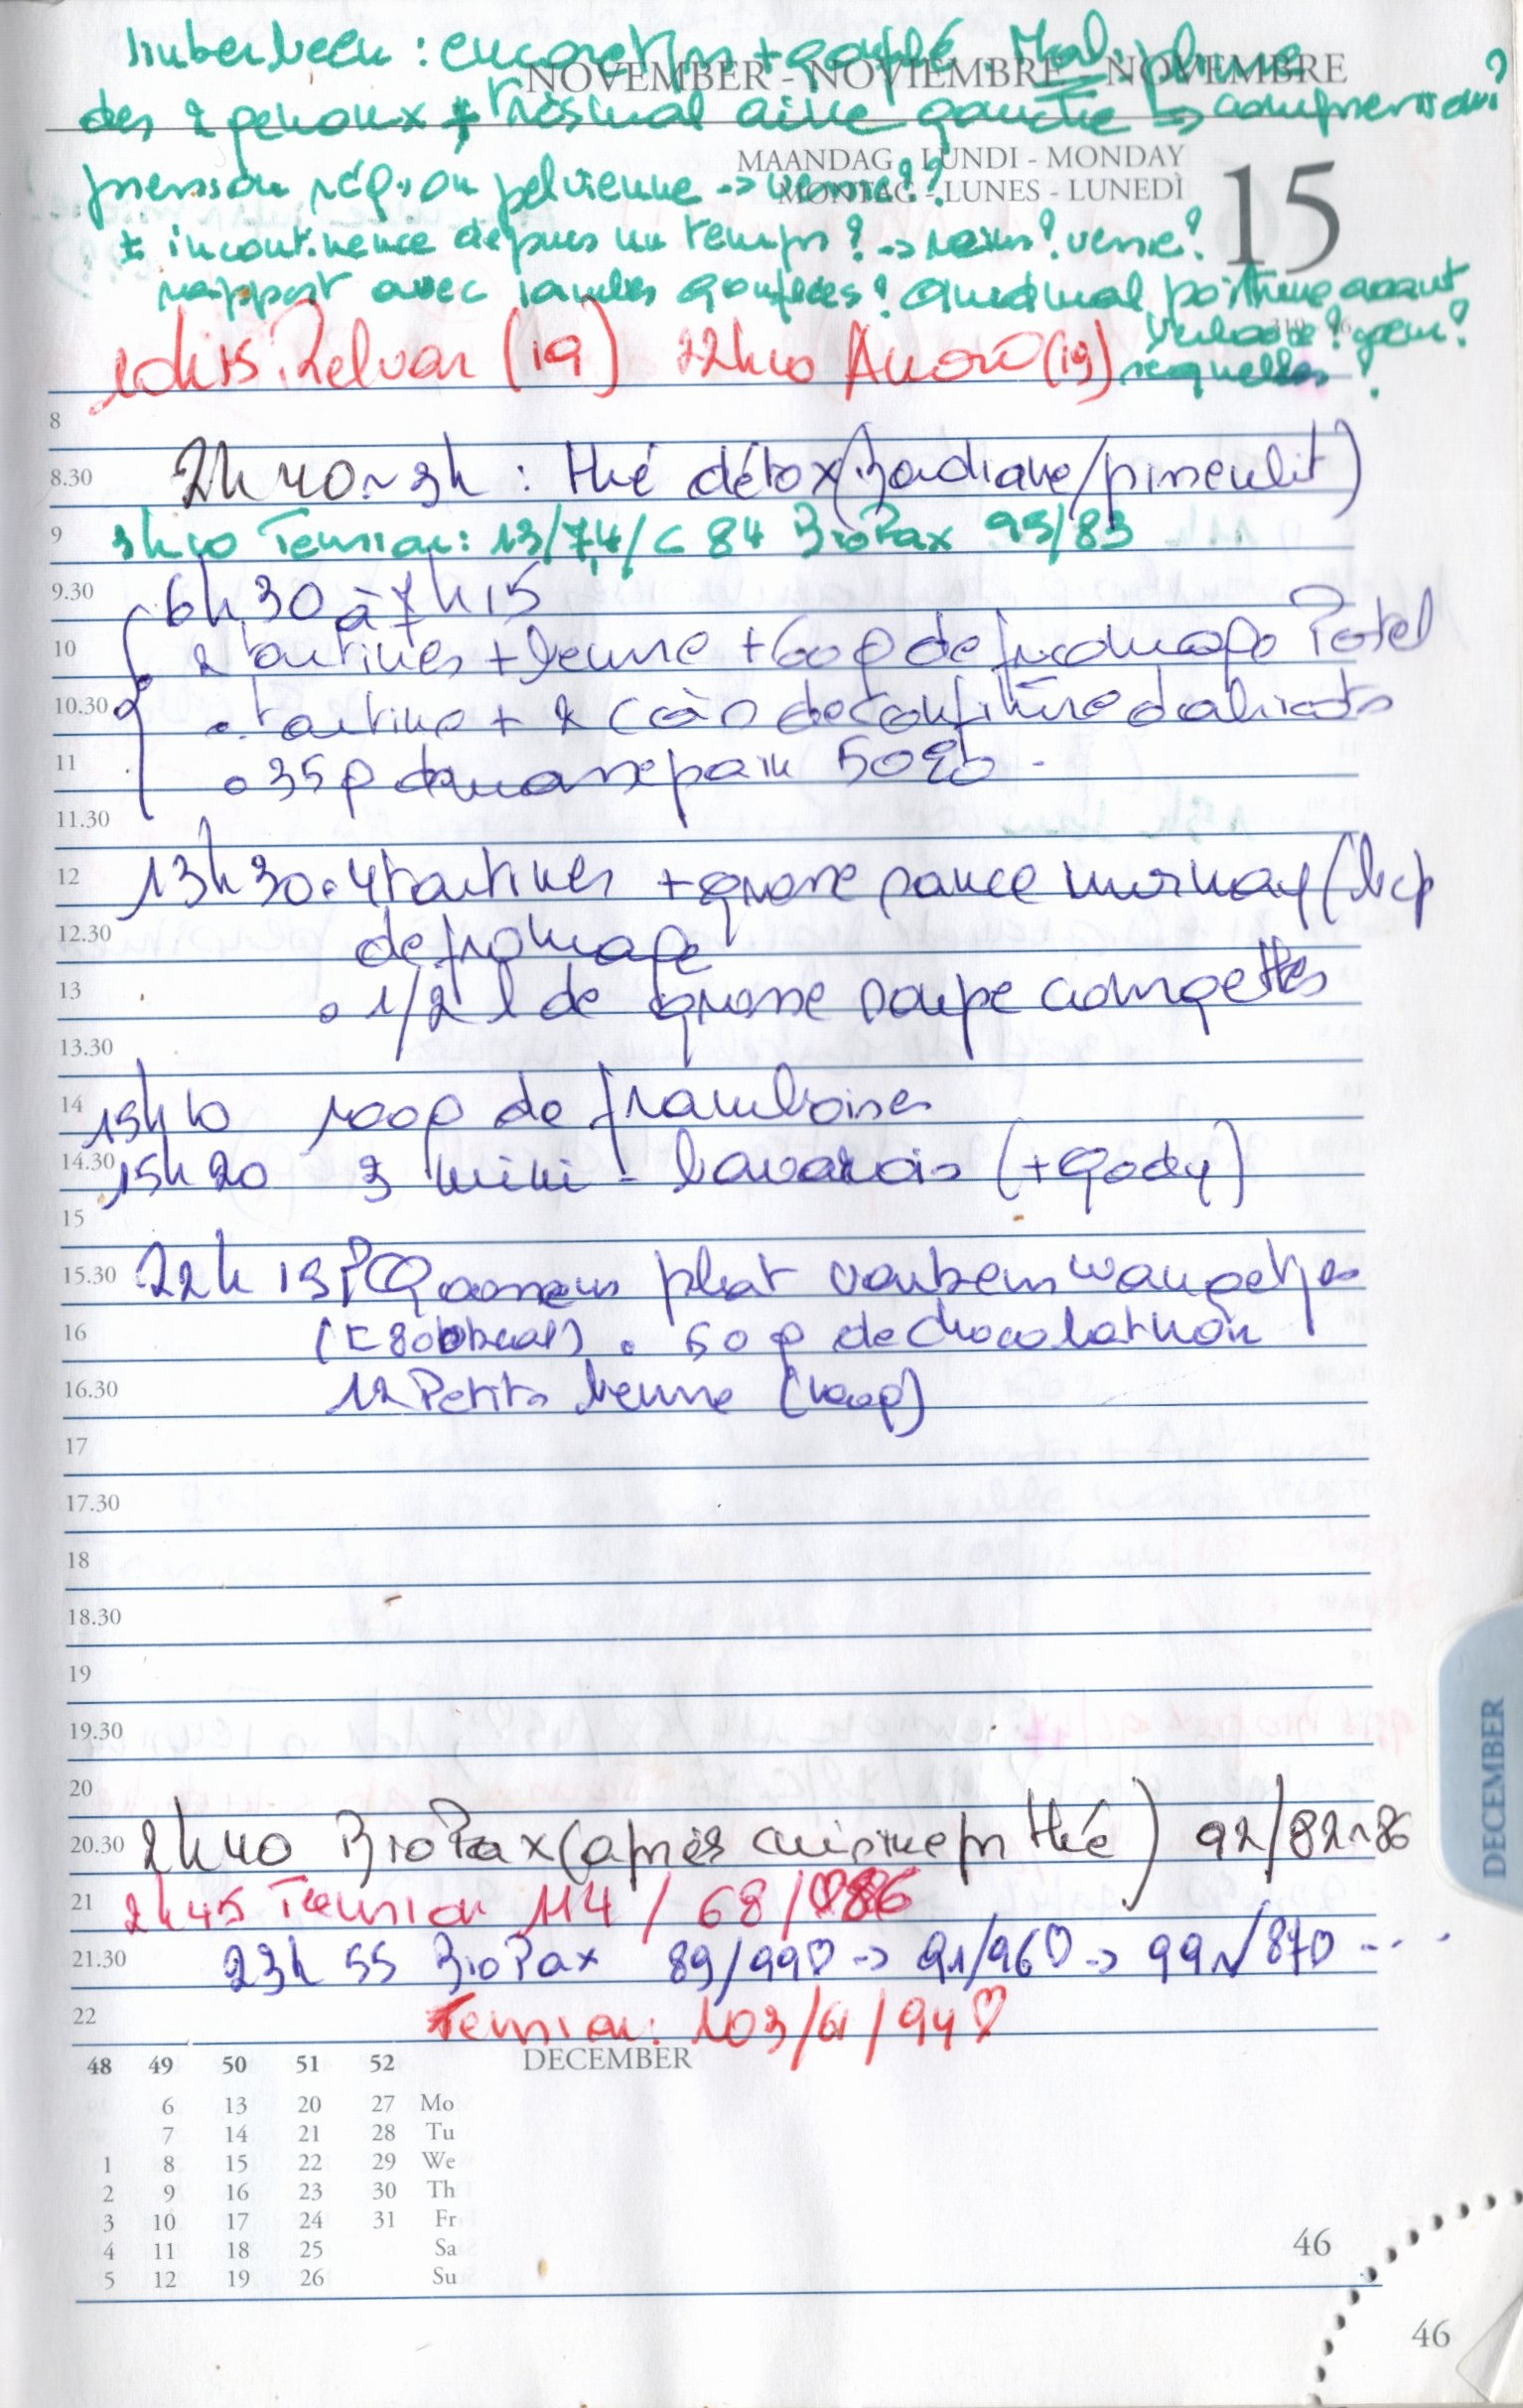 timberbeen : encore + gonflé. Mal plume
NOVEMBER - NOVIEMBRE - NOVEMBRE
des 2 genoux + très mal aine gauche → compression?
MAANDAG - LUNDI - MONDAY
MONTAG - LUNES - LUNEDÌ
15
pression région pelvienne → vessie??
+ incontinence depuis un temps? → reins? vessie?
rapport avec jambes gonflées? quid mal poitrine avant
séquelles?
10h15 Relvar (19) 22h10 Anoro (19)
8
8.30
2h40 ~ 3h : thé détox (Badiane/pimenlit)
9
3h10 Tension: 13/7,4/C 84 BioPax 95/83
9.30
6h30 à 7h15
10
2 tartines + beurre + 60 g de fromage Potel
10.30
. tartine + 2 C à S de confiture d'abricots
11
. 35 g de massepain 50% .
11.30
12
13h30 . 4 tartines + grosse sauce mornay (bcp
12.30
de fromage
13
. 1/2 l de grosse soupe courgettes
13.30
14
15h10 100g de framboises
14.30
15h20 3 mini-bavarois (+ Gody)
15
15.30
22h15 : Gros plat
16
. 50 g de chocolat noir
16.30
12 Petits beurre (100g)
17
17.30
18
18.30
19
19.30
20
20.30
2h40 BioPax (après cuisine pr thé) 92/82~86
21
2h45 Tension 114 / 68 / ♡86
21.30
23h55 BioPax 89/99♡ → 91/96♡ → 99~/87♡ ....
22
Tension: 103/61/94♡
DECEMBER
48 49 50 51 52
6 13 20 27 Mo
7 14 21 28 Tu
1 8 15 22 29 We
2 9 16 23 30 Th
3 10 17 24 31 Fr
4 11 18 25 Sa
5 12 19 26 Su
46
46
DECEMBER